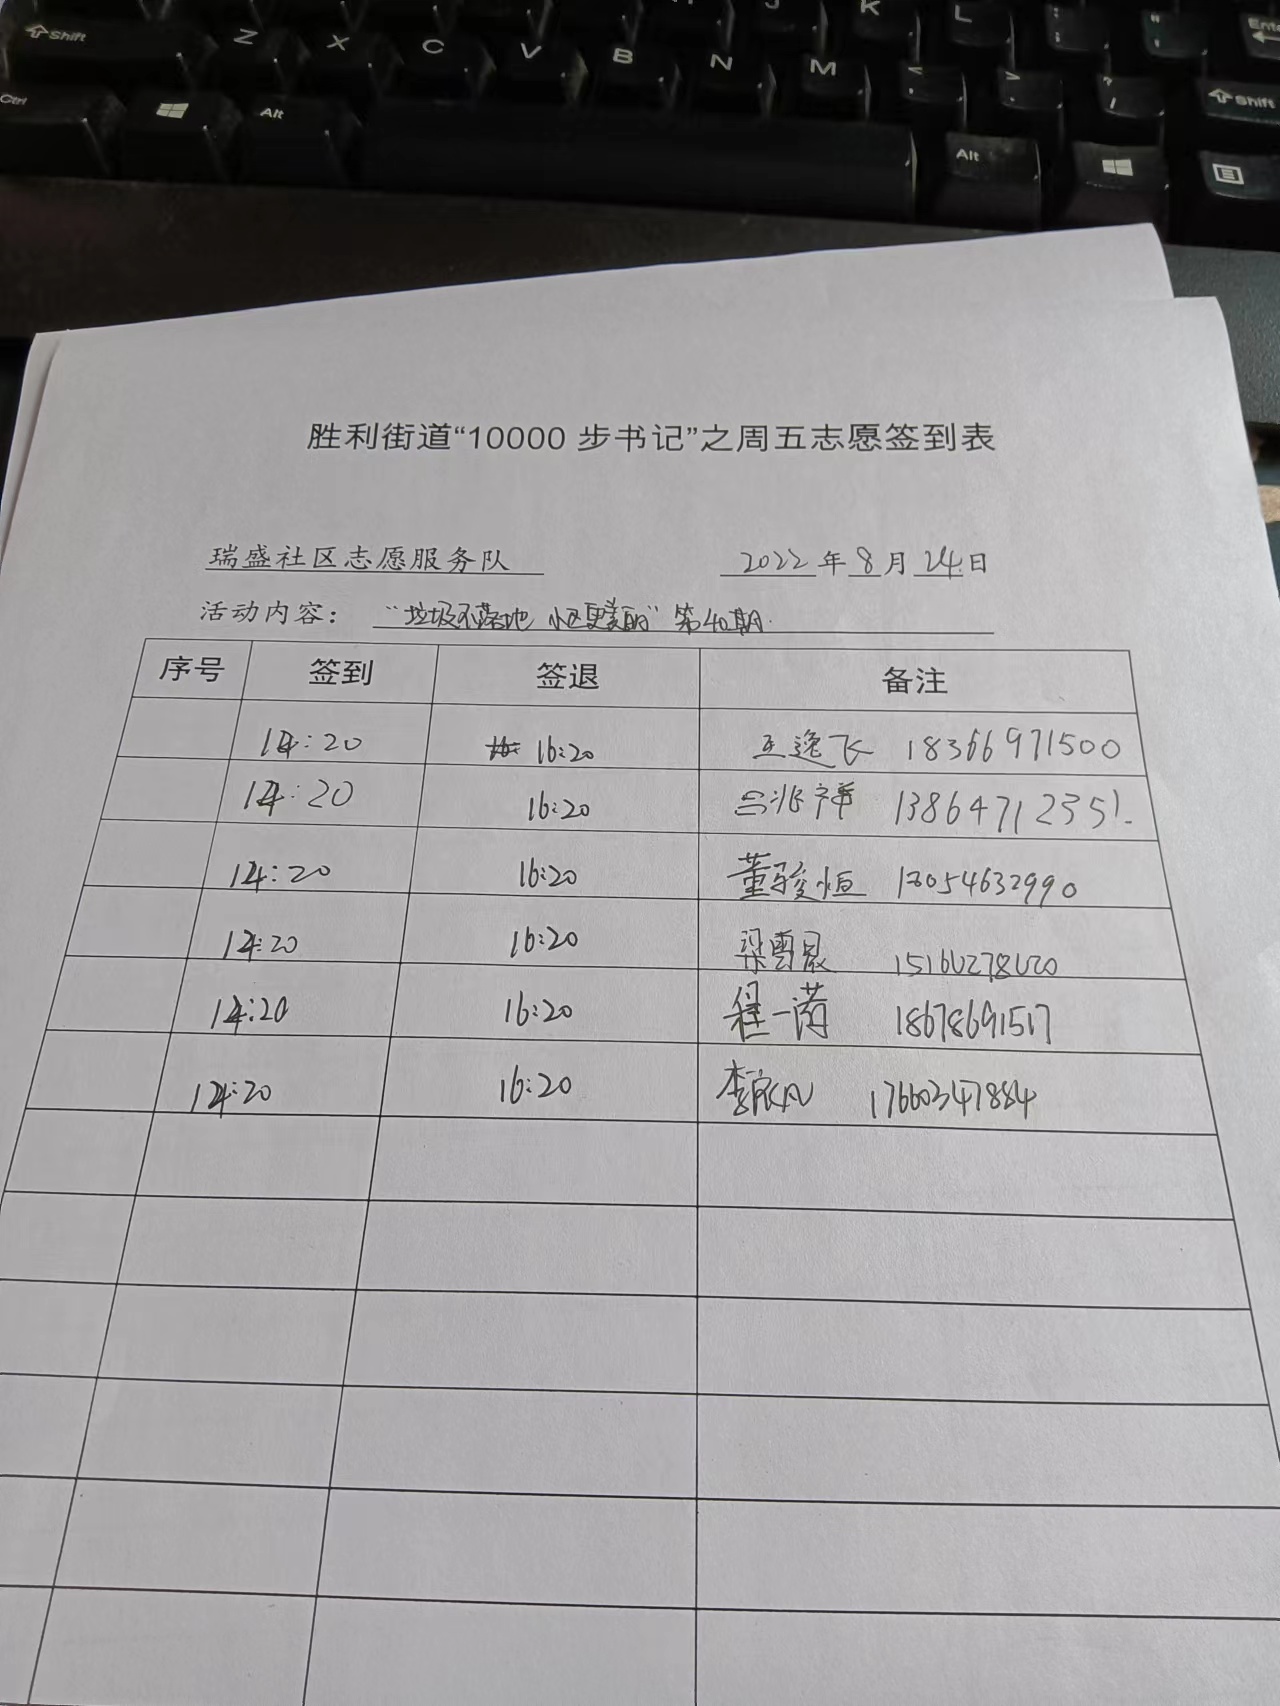 J K L : ; " Enter
Shift Z X C V B N M < , > . ? / Shift
Ctrl Alt Alt
胜利街道“10000 步书记”之周五志愿签到表
瑞盛社区志愿服务队 2022 年 8 月 24 日
活动内容： “垃圾不落地 小区更美丽” 第40期.
序号 签到 签退 备注
14:20 16:20 王逸飞 18366971500
14:20 16:20 吕兆祥 13864712351.
14:20 16:20 董骏恒 13054632990
14:20 16:20 梁雪晨
14:20 16:20 程一 18678691517
14:20 16:20 李 17660347884